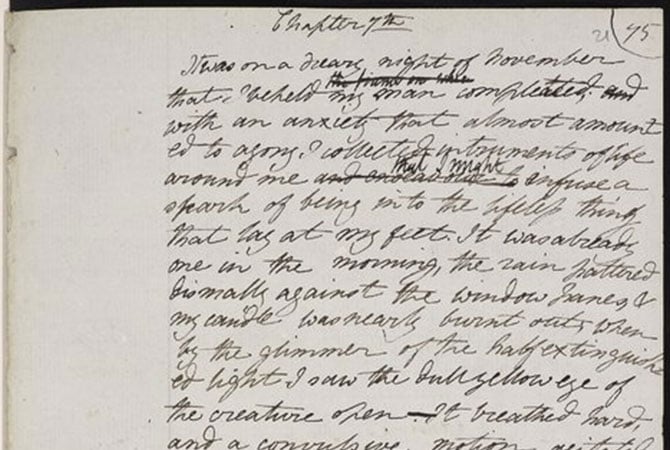 Chapter 7th
75
21
It was on a dreary night of November
the frame on whic
that I beheld my man compleated. and
with an anxiety that almost amount
ed to agony. I collected instruments of life
that I might
around me and endeavour to infuse a
spark of being into the lifeless thing
that lay at my feet. It was already
one in the morning, the rain pattered
dismally against the window panes, &
my candle was nearly burnt out, when
by the glimmer of the half extinguish
ed light I saw the dull yellow eye of
the creature open. It breathed hard,
and a convulsive motion agitated